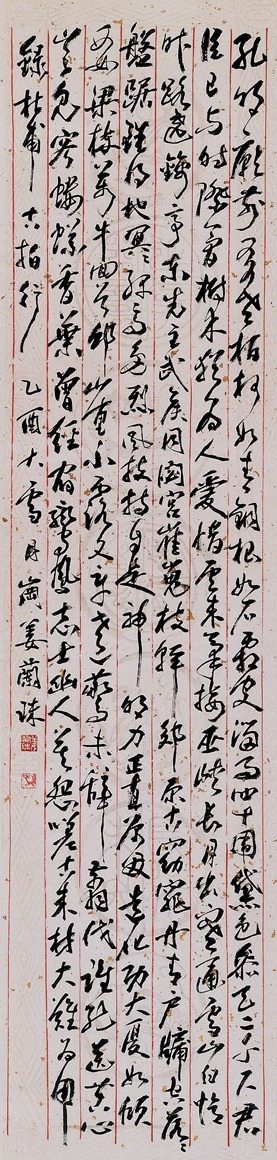 孔明廟前有老柏柯如青銅根如石霜皮溜雨四十圍黛色參天二千尺君
臣已與時際會樹木猶為人愛惜雲來氣接巫峽長月出寒通雪山白憶
昨路遶錦亭東先主武侯同閟宮崔嵬枝幹郊原古窈窕丹青戶牖空落々
盤踞雖得地冥々孤高多烈風扶持自是神明力正直原因造化功大廈如傾
要梁棟萬牛回首邱山重不露文章世已驚未辭翦伐誰能送苦心
豈免容螻蟻香葉曾經宿鸞鳳志士幽人莫怨嗟古來材大難為用
錄杜甫古柏行 乙酉大雪月嵐姜蘭珠